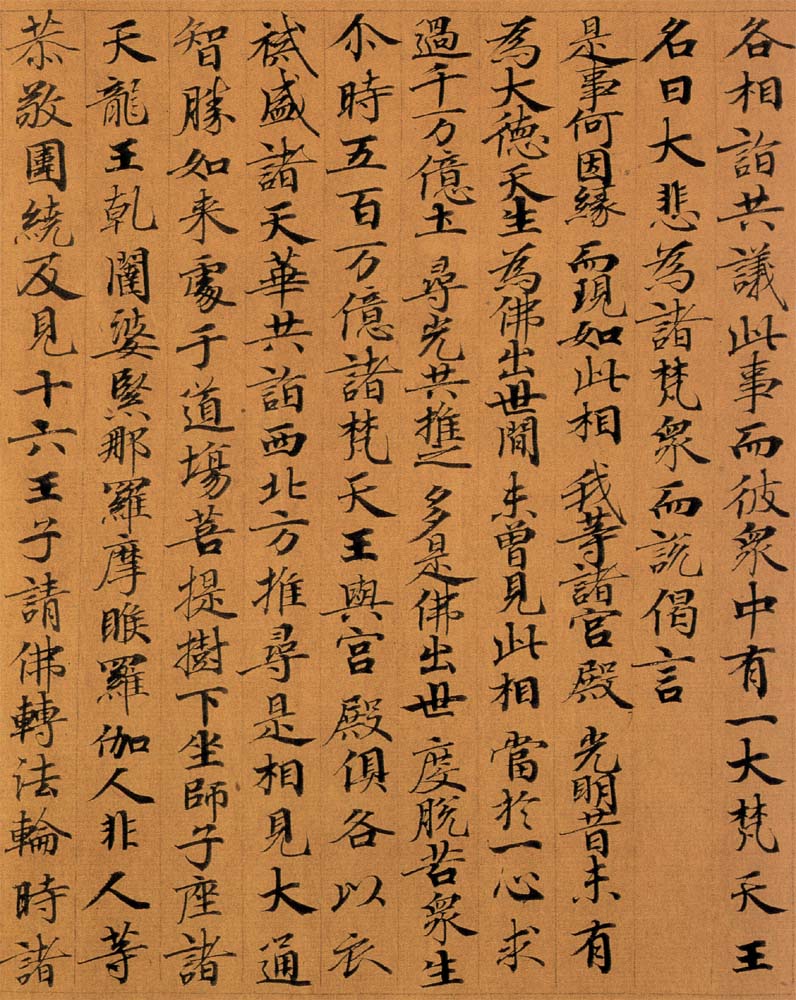 各相詣共議此事而彼衆中有一大梵天王
名曰大悲為諸梵衆而説偈言
是事何因緣 而現如此相 我等諸宮殿 光明昔未有
為大德天生 為佛出世間 未曾見此相 當於一心求
過千万億土 尋光共推之 多是佛出世 度脱苦衆生
尒時五百万億諸梵天王與宮殿俱各以衣
裓盛諸天華共詣西北方推尋是相見大通
智勝如来處于道場菩提樹下坐師子座諸
天龍王乹闥婆緊那羅摩睺羅伽人非人等
恭敬圍繞及見十六王子請佛轉法輪時諸